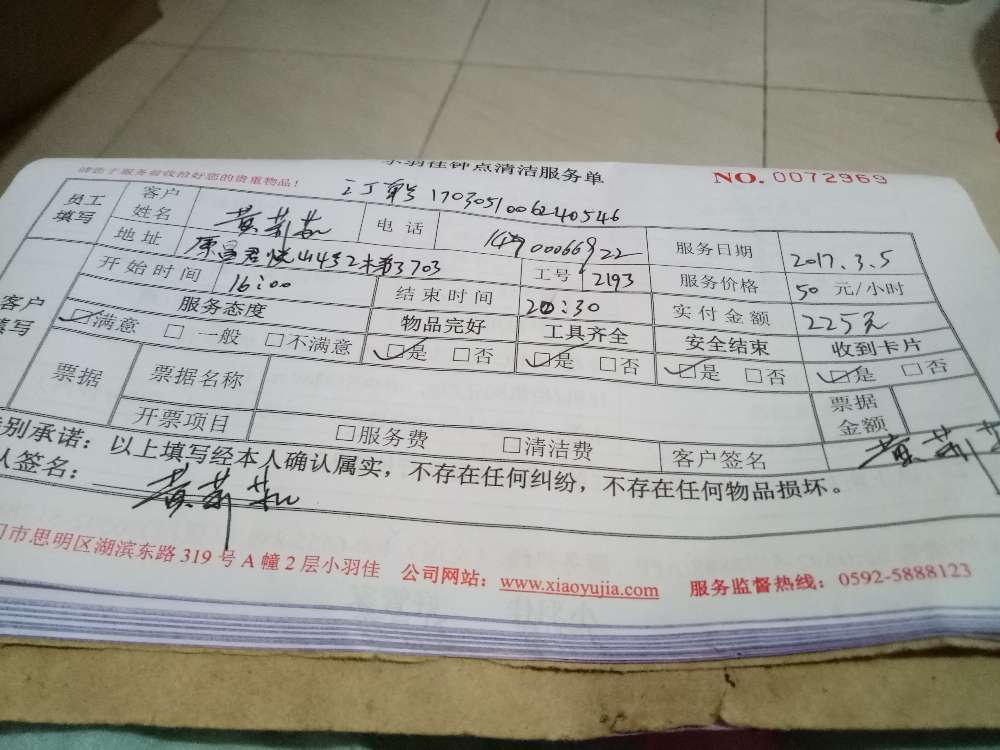 小羽佳钟点清洁服务单
请在服务前收拾好您的贵重物品!
NO. 0072969
订单号 1703051006240546
员工填写 客户姓名 电话 服务日期 2017.3.5
地址 工号 2193 服务价格 50 元/小时
客户填写 开始时间 16:00 结束时间 20:30 实付金额 225元
服务态度 物品完好 工具齐全 安全结束 收到卡片
☑满意 □ 一般 □不满意 ☑是 □否 ☑是 □否 ☑是 □否 ☑是 □否
票据 票据名称 票据金额
开票项目 □服务费 □清洁费 客户签名
特别承诺:以上填写经本人确认属实,不存在任何纠纷,不存在任何物品损坏。
人签名:
门市思明区湖滨东路 319 号 A 幢 2 层小羽佳 公司网站:www.xiaoyujia.com 服务监督热线:0592-5888123